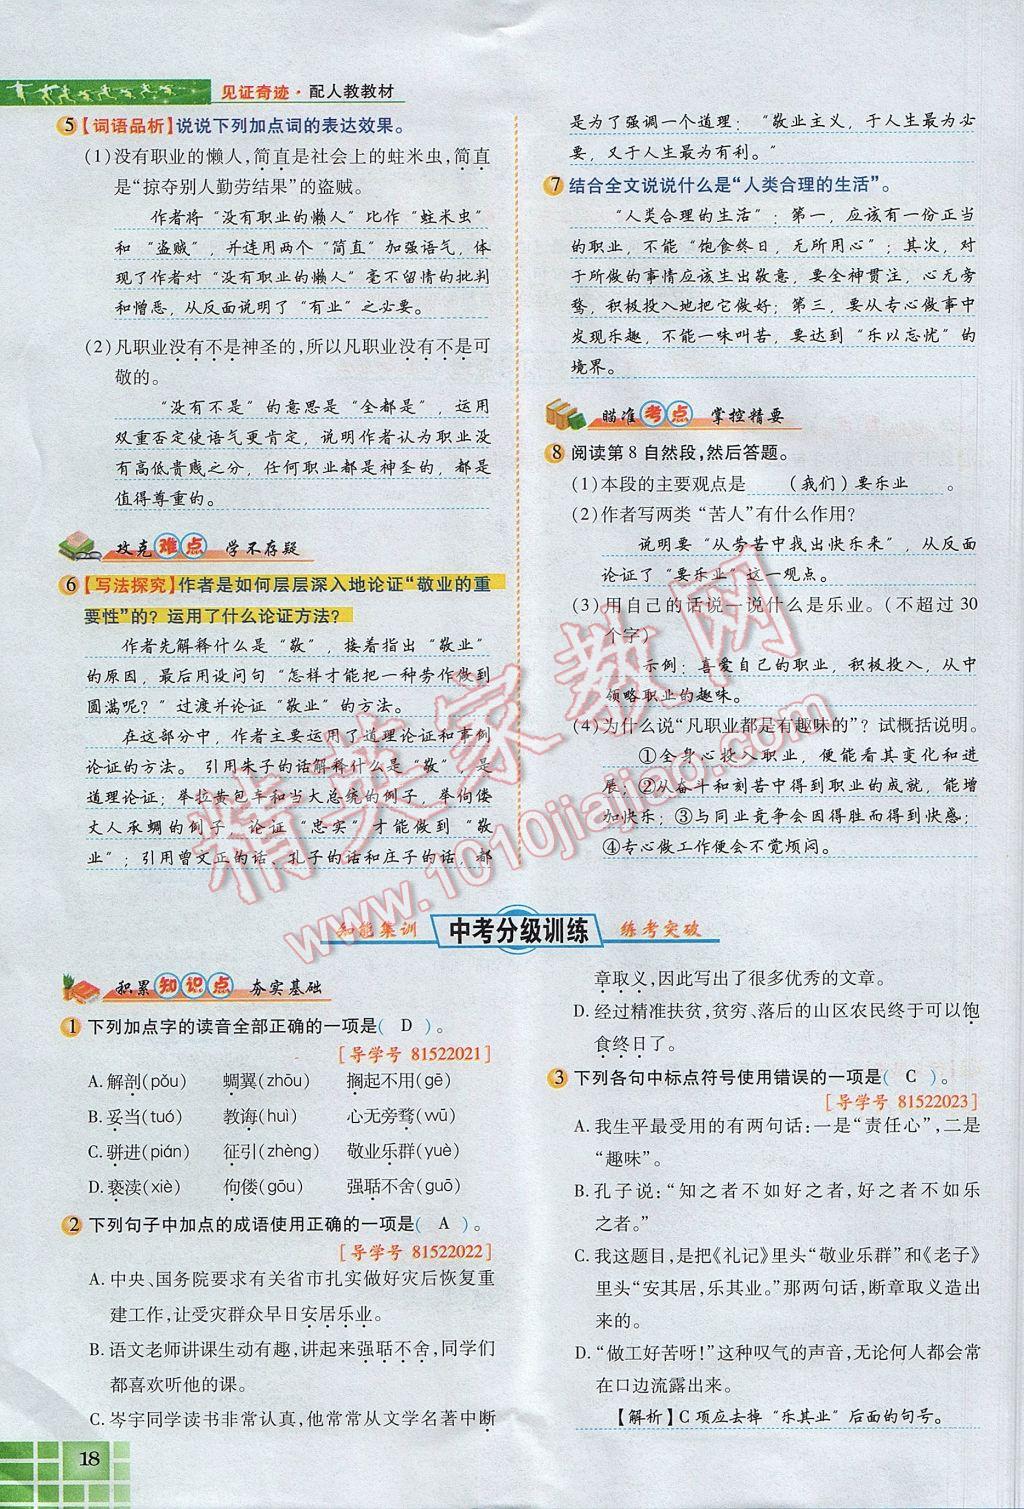 见证奇迹·配人教教材
5【词语品析】说说下列加点词的表达效果。
(1)没有职业的懒人,简直是社会上的蛀米虫,简直
是“掠夺别人勤劳结果”的盗贼。
作者将“没有职业的懒人”比作“蛀米虫”
和“盗贼”,并连用两个“简直”加强语气,体
现了作者对“没有职业的懒人”毫不留情的批判
和憎恶,从反面说明了“有业”之必要。
(2)凡职业没有不是神圣的,所以凡职业没有不是可
敬的。
“没有不是”的意思是“全都是”,运用
双重否定使语气更肯定,说明作者认为职业没
有高低贵贱之分,任何职业都是神圣的,都是
值得尊重的。
攻克难点 学不存疑
6【写法探究】作者是如何层层深入地论证“敬业的重
要性”的?运用了什么论证方法?
作者先解释什么是“敬”,接着指出“敬业”
的原因,最后用设问句“怎样才能把一种劳作做到
圆满呢?”过渡并论证“敬业”的方法。
在这部分中,作者主要运用了道理论证和事例
论证的方法。引用朱子的话解释什么是“敬”是
道理论证;举拉黄包车和当大总统的例子,举佝偻
丈人承蜩的例子,论证“忠实”才能做到“敬
业”;引用曾文正的话、孔子的话和庄子的话,都
是为了强调一个道理:“敬业主义,于人生最为必
要,又于人生最为有利。”
7 结合全文说说什么是“人类合理的生活”。
“人类合理的生活”:第一,应该有一份正当
的职业,不能“饱食终日,无所用心”;其次,对
于所做的事情应该生出敬意,要全神贯注,心无旁
骛,积极投入地把它做好;第三,要从专心做事中
发现乐趣,不能一味叫苦,要达到“乐以忘忧”的
境界。
瞄准考点 掌控精要
8 阅读第8自然段,然后答题。
(1)本段的主要观点是 (我们)要乐业 。
(2)作者写两类“苦人”有什么作用?
说明要“从劳苦中找出快乐来”,从反面
论证了“要乐业”这一观点。
(3)用自己的话说一说什么是乐业。(不超过30
个字)
示例:喜爱自己的职业,积极投入,从中
领略职业的趣味。
(4)为什么说“凡职业都是有趣味的”?试概括说明。
①全身心投入职业,便能看其变化和进
展;②从奋斗和刻苦中得到职业的成就,能增
加快乐;③与同业竞争会因得胜而得到快感;
④专心做工作便会不觉烦闷。
知能集训 中考分级训练 练考突破
积累知识点 夯实基础
1 下列加点字的读音全部正确的一项是( D )。
[导学号 81522021]
A.解剖(pǒu) 蜩翼(zhōu) 搁起不用(gē)
B.妥当(tuó) 教诲(huì) 心无旁骛(wū)
C.骈进(pián) 征引(zhèng) 敬业乐群(yuè)
D.亵渎(xiè) 佝偻(gōu) 强聒不舍(guō)
2 下列句子中加点的成语使用正确的一项是( A )。
[导学号 81522022]
A.中央、国务院要求有关省市扎实做好灾后恢复重
建工作,让受灾群众早日安居乐业。
B.语文老师讲课生动有趣,讲起来强聒不舍,同学们
都喜欢听他的课。
C.岑宇同学读书非常认真,他常常从文学名著中断
章取义,因此写出了很多优秀的文章。
D.经过精准扶贫,贫穷、落后的山区农民终于可以饱
食终日了。
3 下列各句中标点符号使用错误的一项是( C )。
[导学号 81522023]
A.我生平最受用的有两句话:一是“责任心”,二是
“趣味”。
B.孔子说:“知之者不如好之者,好之者不如乐
之者。”
C.我这题目,是把《礼记》里头“敬业乐群”和《老子》
里头“安其居,乐其业。”那两句话,断章取义造出
来的。
D.“做工好苦呀!”这种叹气的声音,无论何人都会常
在口边流露出来。
【解析】C项应去掉“乐其业”后面的句号。
18
精英家教网
www.1010jiajiao.com